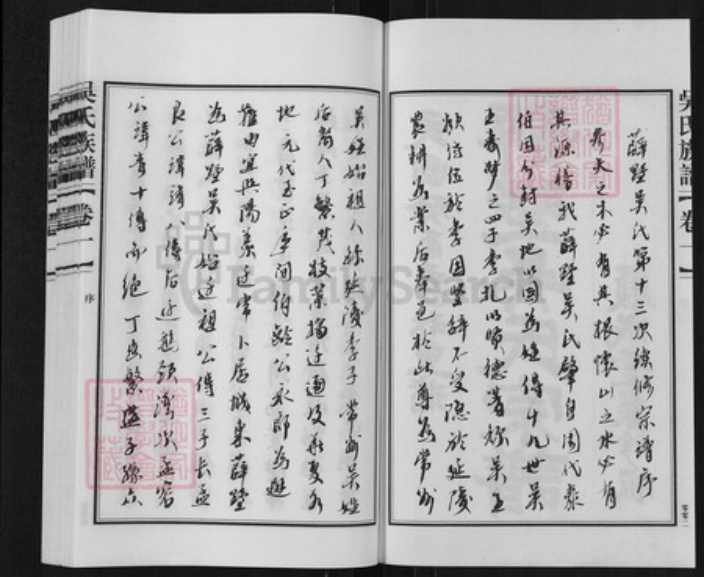 吳氏族譜
卷一
薛墅吳氏第十三次續修宗譜序
參天之木必有其根懷山之水必有
其源稽我薛墅吳氏肇自周代泰
伯因分封吳地以國為姓傳十九世吳
王壽夢之四子季札以賢德著稱吳王
欲傳位於季因堅辭不受隱於延陵
農耕為業后奉邑於此尊為常州
吳姓始祖人稱延陵季子常州吳姓
后裔人丁繁茂枝葉播遷遍及華夏各
地元代至正年間伯齡公永師為避
難由宜興陽羨遷常卜居城東薛墅
為薛墅吳氏始遷祖公傳三子長孟
良公諱 傳后遷 次孟容
公諱貴十傳而絕丁幽繁 子孫眾
吳氏族譜
卷一
序
FamilySearch